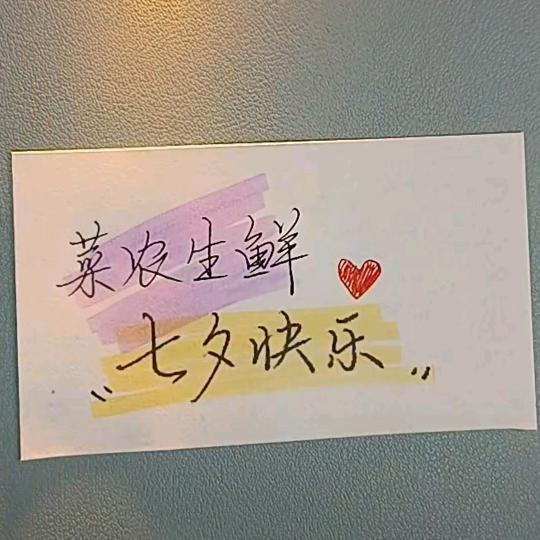 菜农生鲜
〃七夕快乐〃